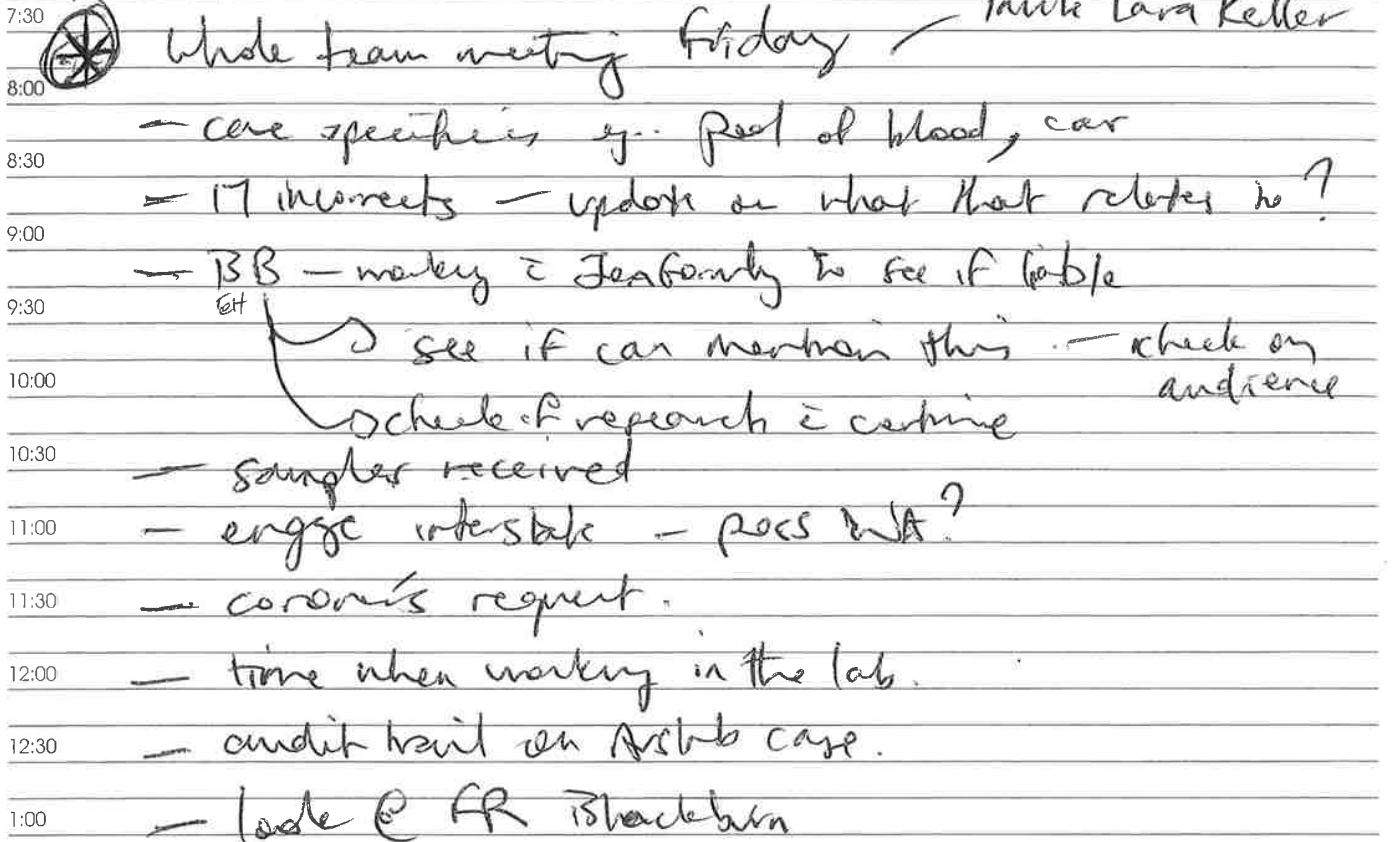 7:30 Lara Keller
Whole team meeting Friday –
8:00
– case specifics eg. pool of blood, car
8:30
– 17 incorrects – update on what that relates to?
9:00
– BB – working c̄ to see if liable
9:30 EH
→ see if can maintain this. – check on
10:00 audience
→ check if research c̄
10:30
– samples received
11:00 – engage interstate – poss WA?
11:30 – coroner's request.
12:00 – time when working in the lab.
12:30 – audit trail on case.
1:00 – look @ FR Blackburn